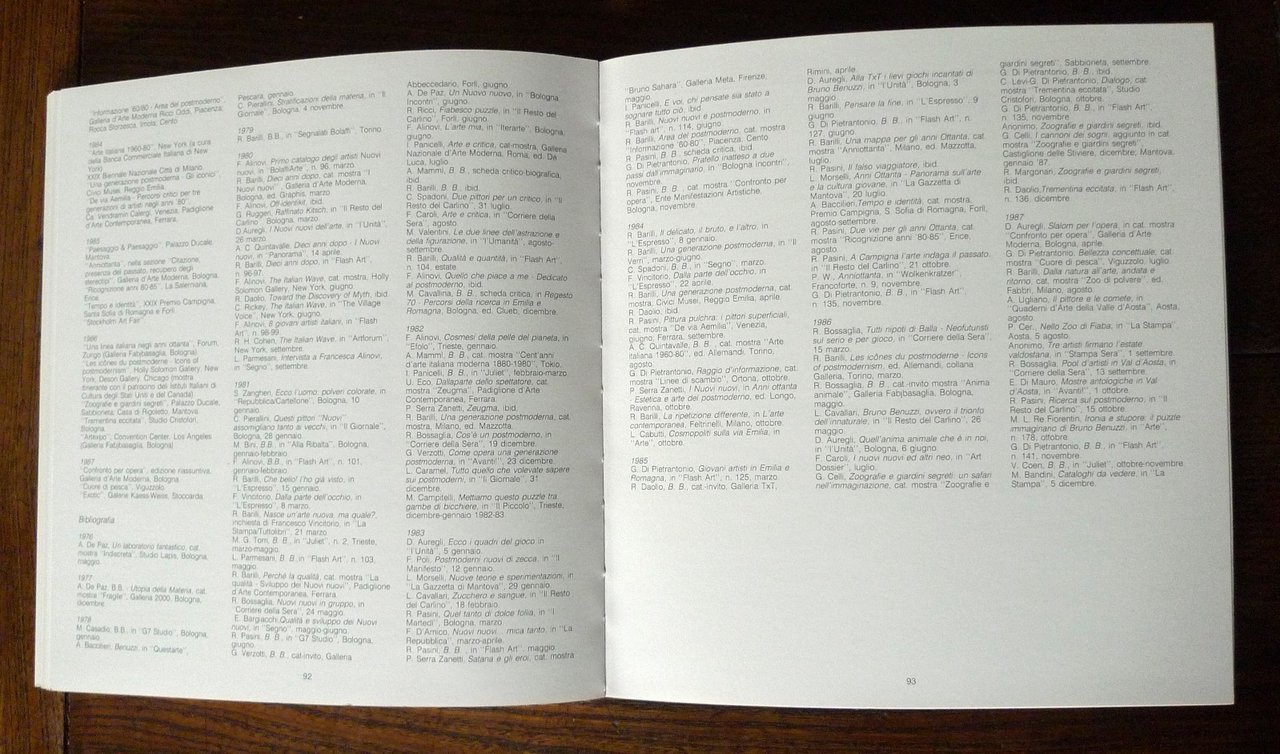 "Informazione '60/80 - Area del postmoderno",
Galleria d'Arte Moderna Ricci Oddi, Piacenza;
Rocca Sforzesca, Imola; Cento
1984
"Arte italiana 1960-80", New York (a cura
della Banca Commerciale Italiana di New
York)
XXIX Biennale Nazionale Città di Milano.
"Una generazione postmoderna - Gli iconici",
Civici Musei, Reggio Emilia.
"De via Aemilia - Percorsi critici per tre
generazioni di artisti negli anni '80",
Ca' Vendramin Calergi, Venezia; Padiglione
d'Arte Contemporanea, Ferrara.
1985
"Paesaggio & Paesaggio", Palazzo Ducale,
Mantova.
"Anniottanta", nella sezione "Citazione,
presenza del passato, recupero degli
stereotipi", Galleria d'Arte Moderna, Bologna.
"Ricognizione anni 80-85", La Salerniana,
Erice.
"Tempo e identità", XXIX Premio Campigna,
Santa Sofia di Romagna e Forlì.
"Stockholm Art Fair"
1986
"Una linea italiana negli anni ottanta", Forum,
Zurigo (Galleria Fabjbasaglia, Bologna).
"Les icônes du postmoderne - Icons of
postmodernism", Holly Solomon Gallery, New
York; Deson Gallery, Chicago (mostra
itinerante con il patrocinio dei Istituti Italiani di
Cultura degli Stati Uniti e del Canada)
"Zoografie e giardini segreti", Palazzo Ducale,
Sabbioneta; Casa di Rigoletto, Mantova.
"Trementina eccitata", Studio Cristofori,
Bologna.
"Artexpo", Convention Center, Los Angeles
(Galleria Fabjbasaglia, Bologna).
1987
"Confronto per opera", edizione riassuntiva,
Galleria d'Arte Moderna, Bologna
"Cuore di pesca", Viguzzolo.
"Exotic", Galerie Kaess-Weiss, Stoccarda.
Bibliografia
1976
A. De Paz, Un laboratorio fantastico, cat.
mostra "Indiscreta", Studio Lapis, Bologna,
maggio.
1977
A. De Paz, B.B. - Utopia della Materia, cat.
mostra "Fragile", Galleria 2000, Bologna,
dicembre.
1978
M. Casadio, B.B., in "G7 Studio", Bologna,
gennaio.
A. Baccilieri, Benuzzi, in "Questarte",
Pescara, gennaio
C. Pierallini, Stratificazioni della materia, in "Il
Giornale", Bologna, 4 novembre.
1979
R. Barilli, B.B., in "Segnalati Bolaffi", Torino.
1980
F. Alinovi, Primo catalogo degli artisti Nuovi
nuovi, in "BolaffiArte", n. 96, marzo.
R. Barilli, Dieci anni dopo, cat. mostra "I
Nuovi nuovi", Galleria d'Arte Moderna,
Bologna, ed. Graphis, marzo
F. Alinovi, Off-identikit, ibid.
G. Ruggeri, Raffinato Kitsch, in "Il Resto del
Carlino", Bologna, marzo.
D.Auregli, I Nuovi nuovi dell'arte, in "l'Unità",
26 marzo
A. C. Quintavalle, Dieci anni dopo - I Nuovi
nuovi, in "Panorama", 14 aprile.
R. Barilli, Dieci anni dopo, in "Flash Art",
n. 96-97.
F. Alinovi, The Italian Wave, cat. mostra, Holly
Solomon Gallery, New York, giugno
R. Daolio, Toward the Discovery of Myth, ibid.
C. Rickey, The Italian Wave, in "The Village
Voice", New York, giugno.
F. Alinovi, 8 giovani artisti italiani, in "Flash
Art", n. 98-99.
R. H. Cohen, The Italian Wave, in "Artforum",
New York, settembre.
L. Parmesani, Intervista a Francesca Alinovi,
in "Segno", settembre.
1981
S. Zangheri, Ecco l'uomo, polveri colorate, in
"Repubblica/Cartellone", Bologna, 10
gennaio
C. Pierallini, Questi pittori "Nuovi"
assomigliano tanto ai vecchi, in "Il Giornale",
Bologna, 28 gennaio
M. Bini, B.B., in "Alla Ribalta", Bologna,
gennaio-febbraio.
F. Alinovi, B.B., in "Flash Art", n. 101,
gennaio-febbraio.
R. Barilli, Che bello! l'ho già visto, in
"L'Espresso", 15 gennaio
F. Vincitorio, Dalla parte dell'occhio, in
"L'Espresso", 8 marzo
R. Barilli, Nasce un'arte nuova, ma quale?,
inchiesta di Francesco Vincitorio, in "La
Stampa/Tuttolibri", 21 marzo.
M. G. Torri, B. B., in "Juliet", n. 2, Trieste,
marzo-maggio.
L. Parmesani, B. B.,in "Flash Art", n. 103,
maggio.
R. Barilli, Perché la qualità, cat. mostra "La
qualità - Sviluppo dei Nuovi nuovi", Padiglione
d'Arte Contemporanea, Ferrara.
R. Bossaglia, Nuovi nuovi in gruppo, in
"Corriere della Sera", 24 maggio.
E. Bargiacchi,Qualità e sviluppo dei Nuovi
nuovi, in "Segno", maggio-giugno.
R. Pasini, B. B., in "G7 Studio", Bologna,
giugno.
G. Verzotti, B. B., cat-invito, Galleria
92
Abbeccedario, Forlì, giugno.
A. De Paz, Un Nuovo nuovo, in "Bologna
Incontri", giugno.
R. Ricci, Fiabesco puzzle, in "Il Resto del
Carlino", Forlì, giugno.
F. Alinovi, L'arte mia, in "Iterarte", Bologna,
giugno.
I. Panicelli, Arte e critica, cat-mostra, Galleria
Nazionale d'Arte Moderna, Roma, ed. De
Luca, luglio.
A. Mammì, B. B., scheda critico-biografica,
ibid.
R. Barilli, B. B., ibid.
C. Spadoni, Due pittori per un critico, in "Il
Resto del Carlino", 31 luglio
F. Caroli, Arte e critica, in "Corriere della
Sera", agosto.
M. Valentini, Le due linee dell'astrazione e
della figurazione, in "l'Umanità", agosto-
settembre.
R. Barilli, Qualità e quantità, in "Flash Art",
n. 104, estate.
F. Alinovi, Quello che piace a me - Dedicato
al postmoderno, ibid.
M. Cavallina, B. B., scheda critica, in Regesto
70 - Percorsi della ricerca in Emilia e
Romagna, Bologna, ed. Clueb, dicembre.
1982
F. Alinovi, Cosmesi della pelle del pianeta, in
"Efolo", Trieste, gennaio.
A. Mammì, B. B., cat. mostra "Cent'anni
d'arte italiana moderna 1880-1980", Tokio.
I. Panicelli, B. B., in "Juliet", febbraio-marzo.
U. Eco, Dallaparte dello spettatore, cat.
mostra "Zeugma", Padiglione d'Arte
Contemporanea, Ferrara.
P. Serra Zanetti, Zeugma, ibid.
R. Barilli, Una generazione postmoderna, cat.
mostra, Milano, ed. Mazzotta.
R. Bossaglia, Cos'è un postmoderno, in
"Corriere della Sera", 19 dicembre.
G. Verzotti, Come opera una generazione
postmoderna, in "Avanti!", 23 dicembre.
L. Caramel, Tutto quello che volevate sapere
sui postmoderni, in "Il Giornale", 31
dicembre.
M. Campitelli, Mettiamo questo puzzle tra
gambe di bicchiere, in "Il Piccolo", Trieste,
dicembre-gennaio 1982-83.
1983
D. Auregli, Ecco i quadri del gioco, in
"l'Unità", 5 gennaio.
F. Poli, Postmoderni nuovi di zecca, in "Il
Manifesto", 12 gennaio.
L. Morselli, Nuove teorie e sperimentazioni, in
"La Gazzetta di Mantova", 29 gennaio.
L. Cavallari, Zucchero e sangue, in "Il Resto
del Carlino", 18 febbraio.
R. Pasini, Quel tanto di dolce follia, in "I
Martedì", Bologna, marzo
F. D'Amico, Nuovi nuovi... mica tanto, in "La
Repubblica", marzo-aprile.
R. Pasini, B. B. , in "Flash Art", maggio
P. Serra Zanetti, Satana e gli eroi, cat. mostra
"Bruno Sahara", Galleria Meta, Firenze,
maggio.
I. Panicelli, E voi, chi pensate sia stato a
sognare tutto ciò, ibid.
R. Barilli, Nuovi nuovi e postmoderno, in
"Flash art", n. 114, giugno.
R. Barilli, Area del postmoderno, cat. mostra
"Informazione '60-80", Piacenza, Cento
R. Pasini, B. B., scheda critica, ibid
G. Di Pietrantonio, Pratello inatteso a due
passi dall'immaginario, in "Bologna incontri",
novembre.
R. Pasini, B. B. , cat. mostra "Confronto per
opera", Ente Manifestazioni Artistiche,
Bologna, novembre.
1984
R. Barilli, Il delicato, il bruto, e l'altro, in
"L'Espresso", 8 gennaio.
R. Barilli, Una generazione postmoderna, in "Il
Verri", marzo-giugno.
C. Spadoni, B. B., in "Segno", marzo.
F. Vincitorio, Dalla parte dell'occhio, in
"L'Espresso", 22 aprile.
R. Barilli, Una generazione postmoderna, cat.
mostra, Civici Musei, Reggio Emilia, aprile.
R. Daolio, ibid.
R. Pasini, Pittura pulchra: i pittori superficiali,
cat. mostra "De via Aemilia", Venezia,
giugno; Ferrara, settembre.
A. C. Quintavalle, B. B., cat. mostra "Arte
italiana 1960-80", ed. Allemandi, Torino,
agosto.
G. Di Pietrantonio, Raggio d'informazione, cat.
mostra "Linee di scambio", Ortona, ottobre.
P. Serra Zanetti, I Nuovi nuovi, in Anni ottanta
- Estetica e arte del postmoderno, ed. Longo,
Ravenna, ottobre.
R. Barilli, La ripetizione differente, in L'arte
contemporanea, Feltrinelli, Milano, ottobre.
L. Cabutti, Cosmopoliti sulla via Emilia, in
"Arte", ottobre.
1985
G. Di Pietrantonio, Giovani artisti in Emilia e
Romagna, in "Flash Art", n. 125, marzo.
R. Daolio, B. B., cat-invito, Galleria TxT,
Rimini, aprile.
D. Auregli, Alla TxT i lievi giochi incantati di
Bruno Benuzzi, in "l'Unità", Bologna, 3
maggio
R. Barilli, Pensare la fine, in "L'Espresso", 9
giugno
G. Di Pietrantonio, B. B., in "Flash Art", n.
127, giugno
R. Barilli, Una mappa per gli anni Ottanta, cat.
mostra "Anniottanta", Milano, ed. Mazzotta,
luglio.
R. Pasini, Il falso viaggiatore, ibid.
L. Morselli, Anni Ottanta - Panorama sull'arte
e la cultura giovane, in "La Gazzetta di
Mantova", 20 luglio
A. Baccilieri,Tempo e identità, cat. mostra,
Premio Campigna, S. Sofia di Romagna, Forlì,
agosto-settembre.
R. Pasini, Due vie per gli anni Ottanta, cat.
mostra "Ricognizione anni '80-85", Erice,
agosto.
R. Pasini, A Campigna l'arte indaga il passato,
in "Il Resto del Carlino", 21 ottobre.
P. W., Anniottanta, in "Wolkenkratzer",
Francoforte, n. 9, novembre.
G. Di Pietrantonio, B. B., in "Flash Art",
n. 135, novembre.
1986
R. Bossaglia, Tutti nipoti di Balla - Neofuturisti
sul serio e per gioco, in "Corriere della Sera",
15 marzo.
R. Barilli, Les icônes du postmoderne - Icons
of postmodernism, ed. Allemandi, collana
Galleria, Torino, marzo.
R. Bossaglia, B. B., cat-invito mostra "Anima
animale", Galleria Fabjbasaglia, Bologna,
maggio.
L. Cavallari, Bruno Benuzzi, ovvero il trionfo
dell'innaturale, in "Il Resto del Carlino", 26
maggio.
D. Auregli, Quell'anima animale che è in noi,
in "l'Unità", Bologna, 6 giugno.
F. Caroli, I nuovi nuovi ed altri neo, in "Art
Dossier", luglio.
G. Celli, Zoografie e giardini segreti: un safari
nell'immaginazione, cat. mostra "Zoografie e
giardini segreti", Sabbioneta, settembre.
G. Di Pietrantonio, B. B., ibid.
C. Levi-G. Di Pietrantonio, Dialogo, cat.
mostra "Trementina eccitata", Studio
Cristofori, Bologna, ottobre.
G. Di Pietrantonio, B. B., in "Flash Art",
n. 135, novembre.
Anonimo, Zoografie e giardini segreti, ibid.
G. Celli, I cannoni dei sogni, aggiunto in cat.
mostra "Zoografie e giardini segreti",
Castiglione delle Stiviere, dicembre; Mantova,
gennaio '87.
R. Margonari, Zoografie e giardini segreti,
ibid.
R. Daolio,Trementina eccitata, in "Flash Art",
n. 136, dicembre.
1987
D. Auregli, Slalom per l'opera, in cat. mostra
"Confronto per opera", Galleria d'Arte
Moderna, Bologna, aprile.
G. Di Pietrantonio, Bellezza concettuale, cat.
mostra "Cuore di pesca", Viguzzolo, luglio.
R. Barilli, Dalla natura all'arte, andata e
ritorno, cat. mostra "Zoo di polvere", ed.
Fabbri, Milano, agosto.
A. Ugliano, Il pittore e le comete, in
"Quaderni d'Arte della Valle d'Aosta", Aosta,
agosto.
P. Cer., Nello Zoo di Fiaba, in "La Stampa",
Aosta, 5 agosto.
Anonimo, Tre artisti firmano l'estate
valdostana, in "Stampa Sera", 1 settembre.
R. Bossaglia, Pool d'artisti in Val d'Aosta, in
"Corriere della Sera", 13 settembre.
E. Di Mauro, Mostre antologiche in Val
d'Aosta, in "Avanti!", 1 ottobre.
R. Pasini, Ricerca sul postmoderno, in "Il
Resto del Carlino", 15 ottobre.
M. L. Re Fiorentin, Ironia e stupore: il puzzle
immaginario di Bruno Benuzzi, in "Arte",
n. 178, ottobre.
G. Di Pietrantonio, B. B., in "Flash Art",
n. 141, novembre.
V. Coen, B. B., in "Juliet", ottobre-novembre
M. Bandini, Cataloghi da vedere, in "La
Stampa", 5 dicembre.
93